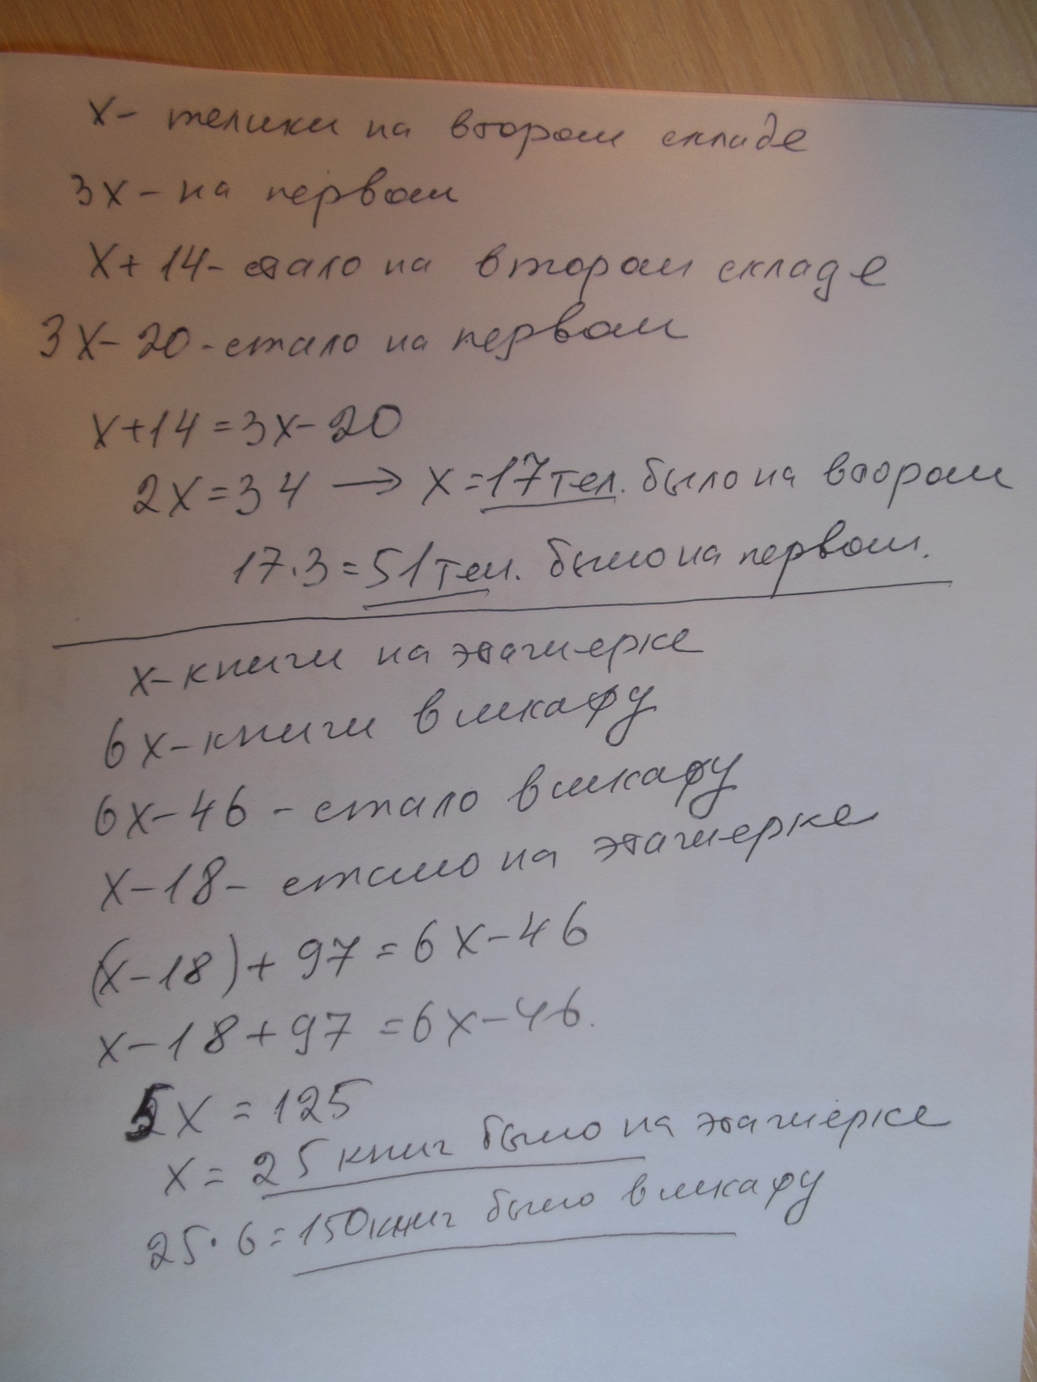 x- телики на втором складе
3x - на первом
x+14- стало на втором складе
3x-20-стало на первом
x+14=3x-20
2x=34 → x=17 тел. было на втором
17·3=51 тел. было на первом.
x-книги на этажерке
6x-книги в шкафу
6x-46 - стало в шкафу
x-18- стало на этажерке
(x-18)+97=6x-46
x-18+97=6x-46.
5x=125
x=25 книг было на этажерке
25·6=150 книг было в шкафу